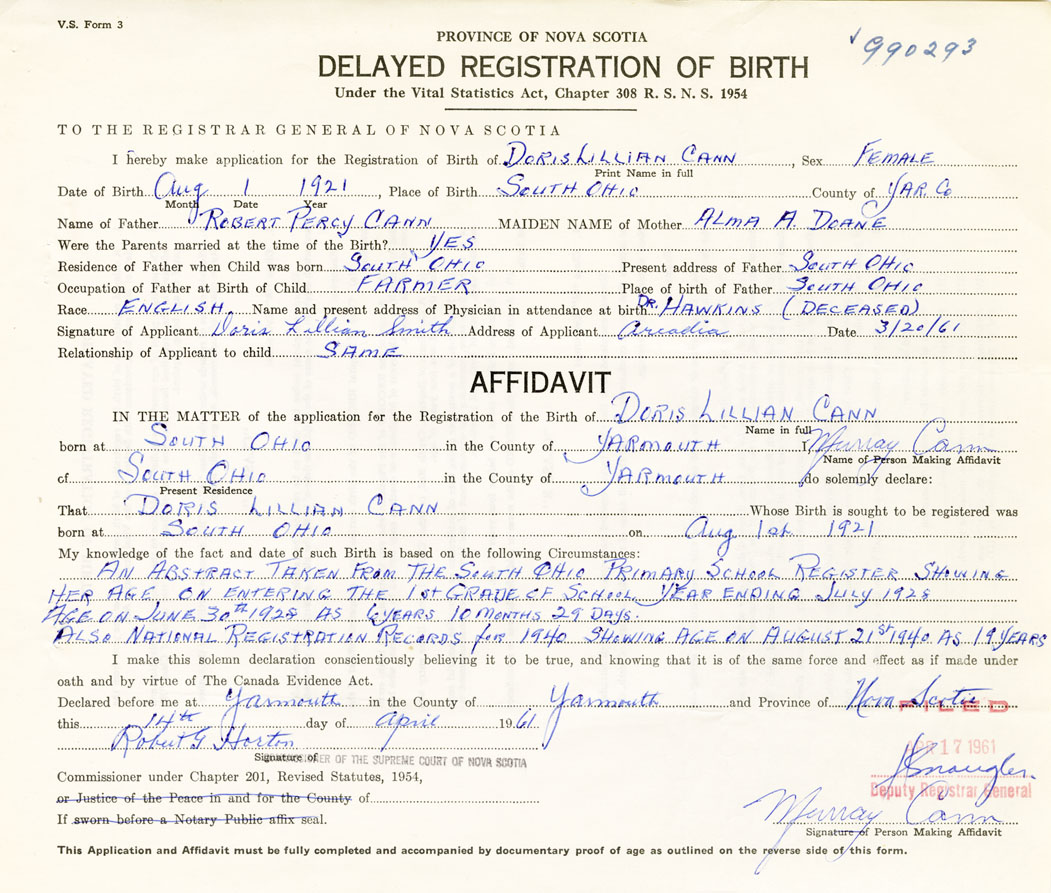 V.S. Form 3
PROVINCE OF NOVA SCOTIA
√990293
DELAYED REGISTRATION OF BIRTH
Under the Vital Statistics Act, Chapter 308 R. S. N. S. 1954
TO THE REGISTRAR GENERAL OF NOVA SCOTIA
I hereby make application for the Registration of Birth of DORIS LILLIAN CANN, Sex FEMALE
Print Name in full
Date of Birth Aug 1 1921, Place of Birth SOUTH OHIO County of YAR. Co
Month Date Year
Name of Father ROBERT PERCY CANN MAIDEN NAME of Mother ALMA A. DOANE
Were the Parents married at the time of the Birth? YES
Residence of Father when Child was born SOUTH OHIO Present address of Father SOUTH OHIO
Occupation of Father at Birth of Child FARMER Place of birth of Father SOUTH OHIO
Race ENGLISH. Name and present address of Physician in attendance at birth DR. HAWKINS (DECEASED)
Signature of Applicant Doris Lillian Smith Address of Applicant Arcadia Date 3/20/61
Relationship of Applicant to child SAME
AFFIDAVIT
IN THE MATTER of the application for the Registration of the Birth of DORIS LILLIAN CANN
Name in full
born at SOUTH OHIO in the County of YARMOUTH I Murray Cann
Name of Person Making Affidavit
of SOUTH OHIO in the County of YARMOUTH do solemnly declare:
Present Residence
That DORIS LILLIAN CANN Whose Birth is sought to be registered was
born at SOUTH OHIO on Aug 1st 1921
My knowledge of the fact and date of such Birth is based on the following Circumstances:
AN ABSTRACT TAKEN FROM THE SOUTH OHIO PRIMARY SCHOOL REGISTER SHOWING
HER AGE ON ENTERING THE 1ST GRADE OF SCHOOL, YEAR ENDING JULY 1928
AGE ON JUNE 30th 1928 AS 6 YEARS 10 MONTHS 29 DAYS.
ALSO NATIONAL REGISTRATION RECORDS for 1940 SHOWING AGE ON AUGUST 21st 1940 AS 19 YEARS
I make this solemn declaration conscientiously believing it to be true, and knowing that it is of the same force and effect as if made under
oath and by virtue of The Canada Evidence Act.
Declared before me at Yarmouth in the County of Yarmouth and Province of Nova Scotia
FILED
this 14th day of April 1961
Robert G Horton
APR 17 1961
Signature of COMMISSIONER OF THE SUPREME COURT OF NOVA SCOTIA
Commissioner under Chapter 201, Revised Statutes, 1954,
Deputy Registrar General
or Justice of the Peace in and for the County of
Murray Cann
If sworn before a Notary Public affix seal.
Signature of Person Making Affidavit
This Application and Affidavit must be fully completed and accompanied by documentary proof of age as outlined on the reverse side of this form.